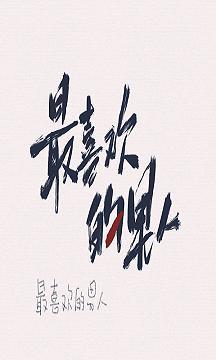 最喜欢
的男人
最喜欢的男人